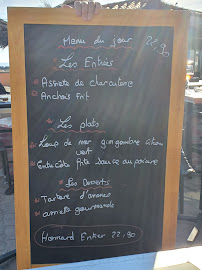 Menu du jour 22,90
Les Entrées
Assiette de charcuterie
Anchois frit
Les plats
Loup de mer gingembre citron
vert
Entrecôte frite sauce au poivre
Les Desserts
Tartare d'ananas
gourmande
Hommard Entier 22,90